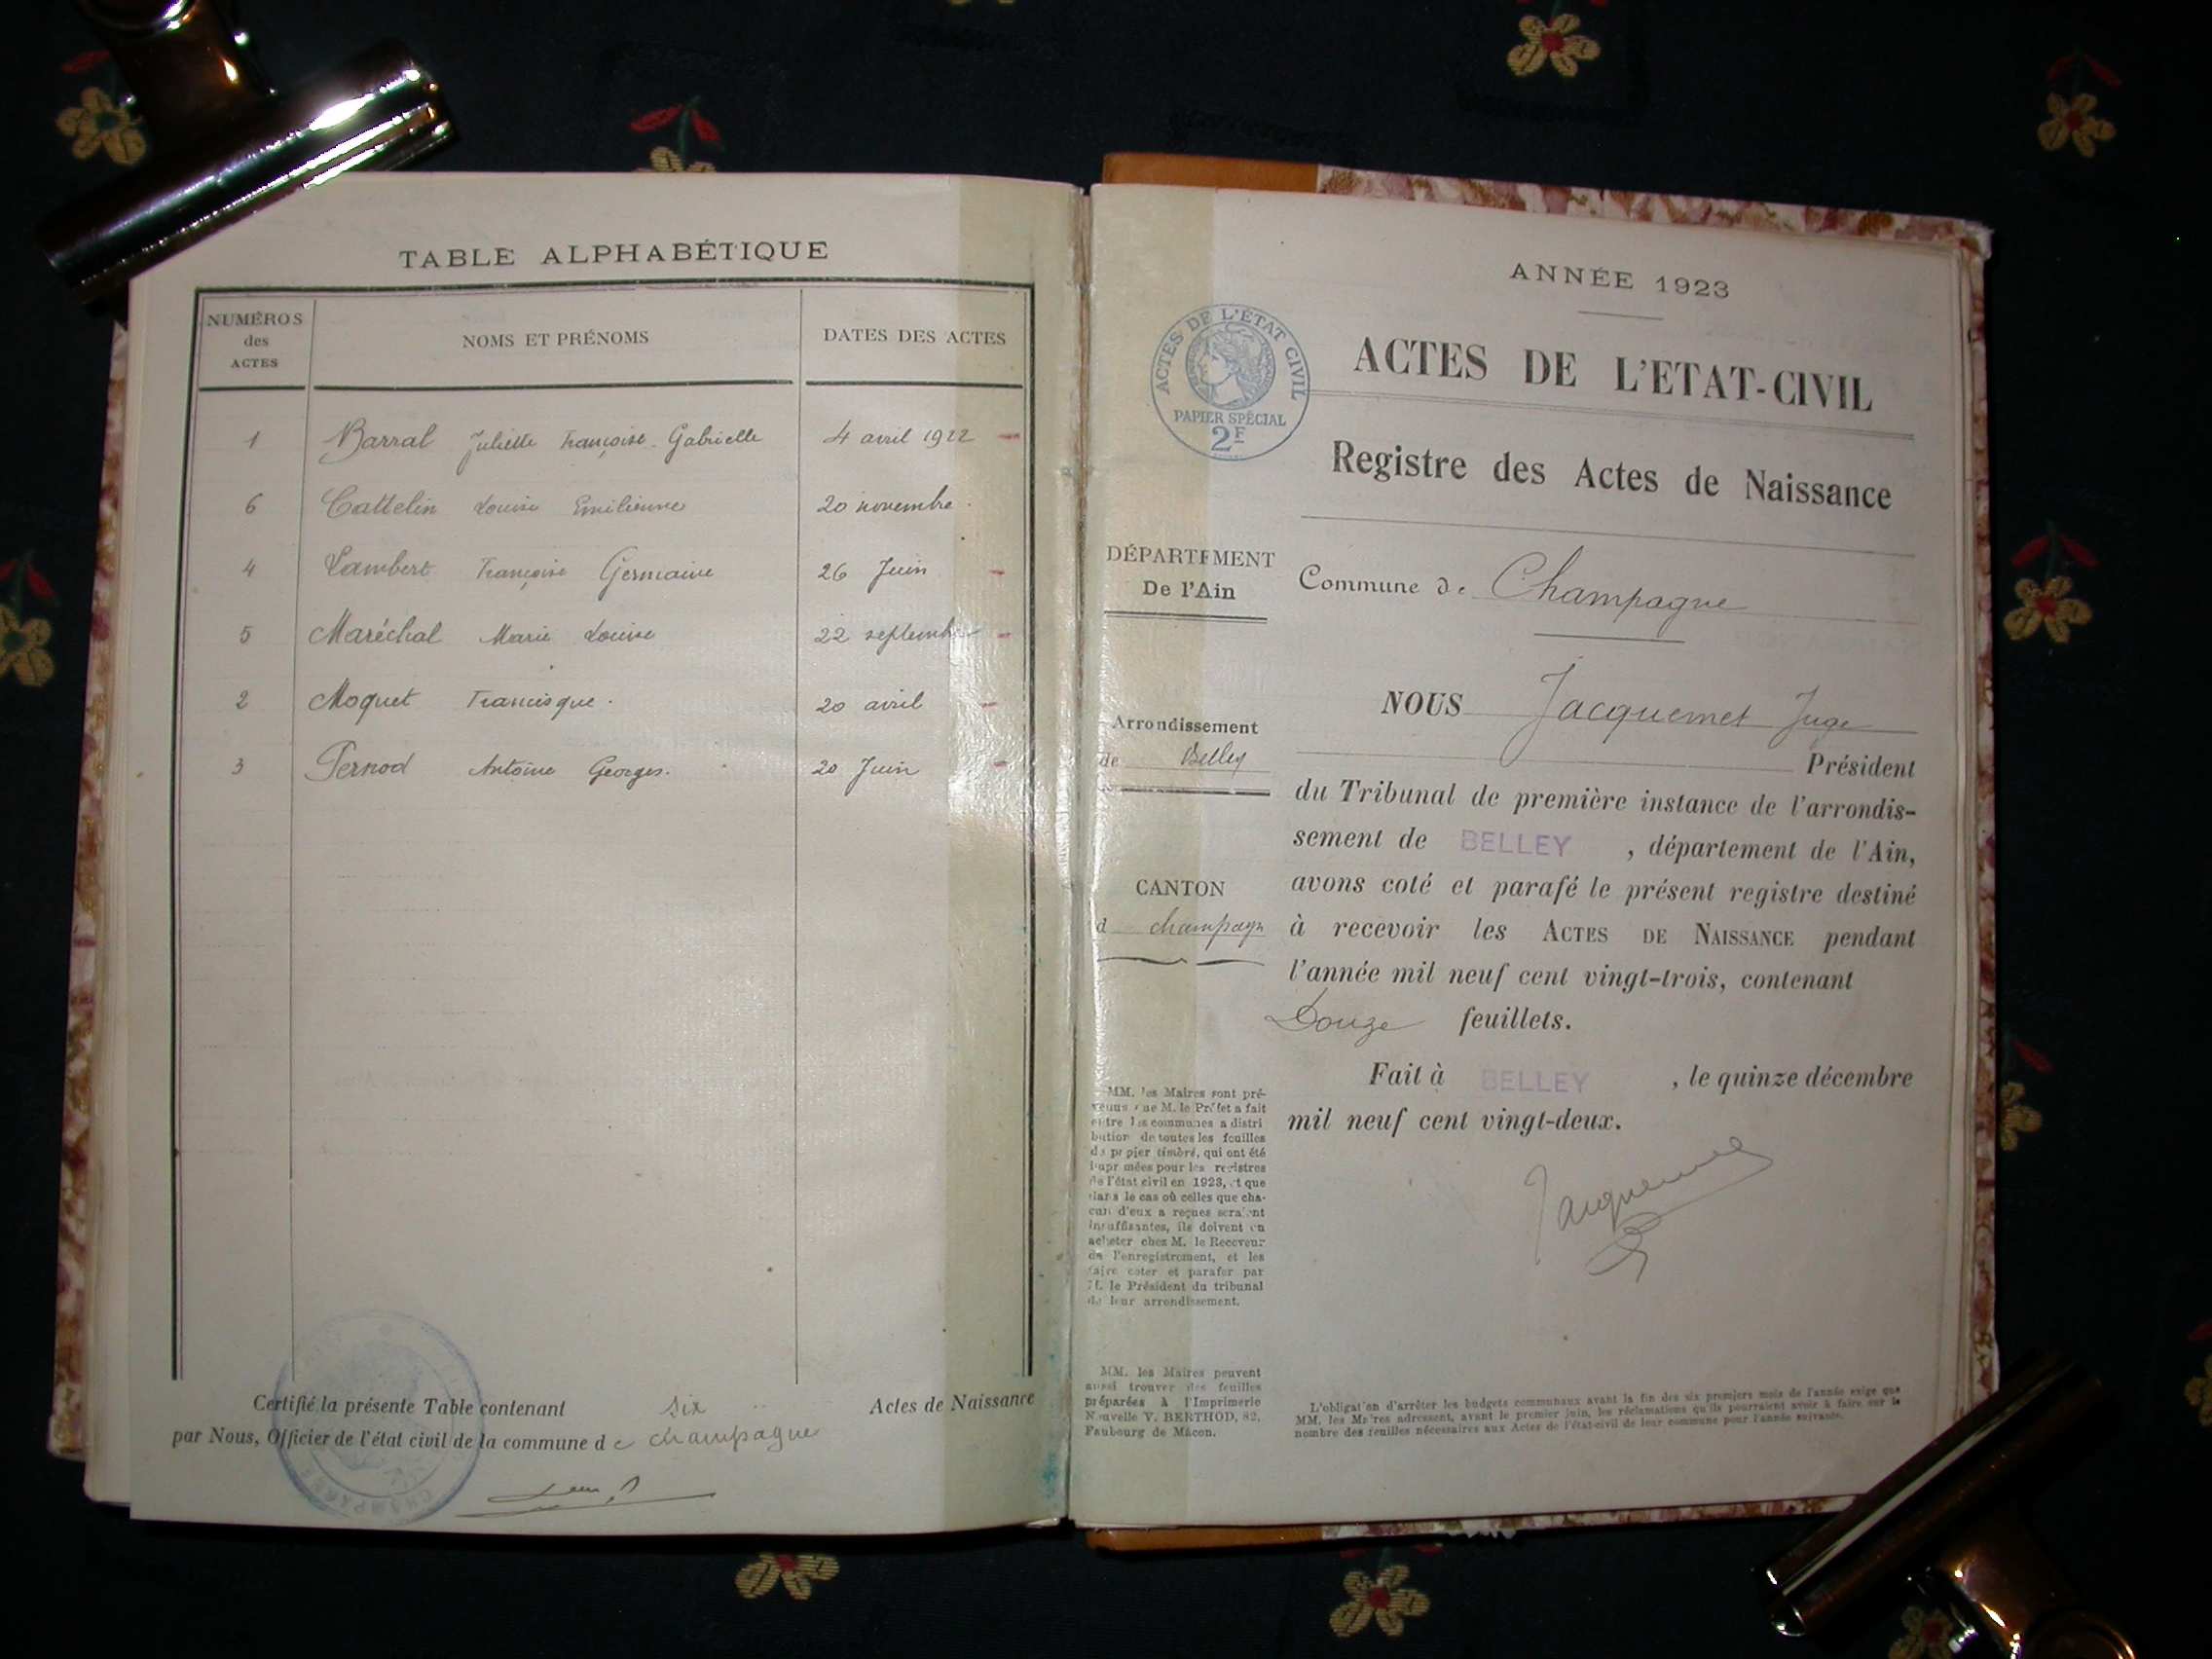 TABLE ALPHABÉTIQUE
NUMÉROS
des
ACTES
NOMS ET PRÉNOMS
DATES DES ACTES
1 Barral Juliette Françoise Gabrielle 4 avril 1922
6 Cattelin Louise Emilienne 20 novembre
4 Lambert Françoise Germaine 26 Juin
5 Maréchal Marie Louise 22 septembre
2 Moquet Francisque. 20 avril
3 Pernod Antoine Georges. 20 Juin
Certifié la présente Table contenant six Actes de Naissance
par Nous, Officier de l'état civil de la commune de Champagne
ANNÉE 1923
ACTES DE L'ÉTAT CIVIL
PAPIER SPÉCIAL
2F
ACTES DE L'ETAT-CIVIL
Registre des Actes de Naissance
DÉPARTEMENT
De l'Ain
Commune de Champagne
Arrondissement
de Belley
CANTON
d champagn
NOUS Jacquemet Juge
Président
du Tribunal de première instance de l'arrondis-
sement de BELLEY, département de l'Ain,
avons coté et parafé le présent registre destiné
à recevoir les ACTES DE NAISSANCE pendant
l'année mil neuf cent vingt-trois, contenant
Douze feuillets.
Fait à BELLEY, le quinze décembre
mil neuf cent vingt-deux.
Jacquemet
MM. les Maires sont pré-
venus que M. le Préfet a fait
entre les communes a distri
bution de toutes les feuilles
de papier timbré, qui ont été
impr mées pour les registres
de l'état civil en 1923, et que
dans le cas où celles que cha-
cun d'eux a reçues seraient
insuffisantes, ils doivent en
acheter chez M. le Receveur
de l'enregistrement, et les
faire coter et parafer par
M. le Président du tribunal
de leur arrondissement.
MM. les Maires peuvent
aussi trouver des feuilles
préparées à l'Imprimerie
Nouvelle V. BERTHOD, 82,
Faubourg de Mâcon.
L'obligation d'arrêter les budgets communaux avant la fin des six premiers mois de l'année exige que
MM. les Maires adressent, avant le premier juin, les réclamations qu'ils pourraient avoir à faire sur le
nombre des feuilles nécessaires aux Actes de l'état-civil de leur commune pour l'année suivante.